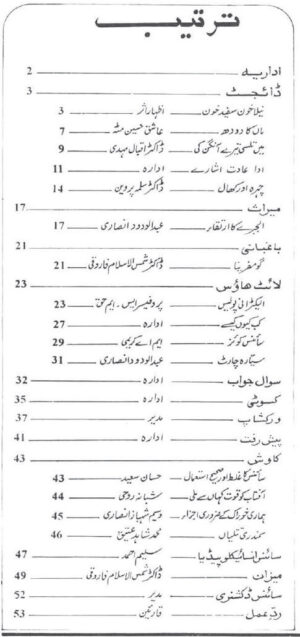 ترتیب
اداریہ 2
ڈائجسٹ 3
نیلا خون سفید خون اظہار اثر 3
ماں کا دودھ عاشق حسین 7
میں تلسی تیرے آنگن کی ڈاکٹر اقبال مہدی 9
ادا عادت اشارے ادارہ 11
چہرہ اور کھال ڈاکٹر سلمہ پروین 14
میراث 17
الجبرے کا ارتقار عبدالودود انصاری 17
باغبانی 21
گومفرینا ڈاکٹر شمس الاسلام فاروقی 21
لائٹ ہاؤس 23
الیکٹرانی پولیس پروفیسر ایس۔ ایم حق 23
کب کیوں کیسے ادارہ 27
سائنس کوئز ایم اے کریمی 29
سیتارہ چارٹ عبدالودود انصاری 31
سوال جواب ادارہ 32
کسوٹی ادارہ 35
ورکشاپ مدیر 37
پیش رفت ادارہ 41
کاوش 43
سائنس کا غلط اور صحیح استعمال حسان سعید 43
آفتاب کو قوت کہاں سے ملی شبانہ روحی 44
ہماری خوراک کے ضروری اجزاء وسیم شہباز انصاری 45
سمندری تلیاں محمد شاہد عتیق 46
سائنس انسائیکلوپیڈیا سلیم احمد 47
میزان ڈاکٹر شمس الاسلام فاروقی 49
سائنس ڈکشنری مدیر 52
ردِ عمل قارئین 53